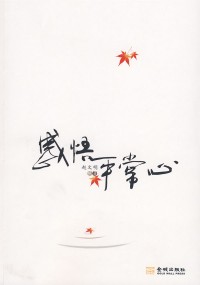 感悟
平常心
赵文明
金城出版社
GOLD WALL PRESS